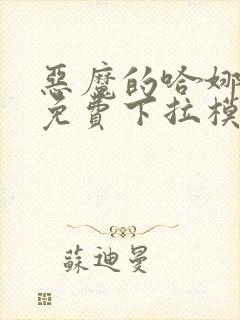 惡魔的哈娜
免費下拉模
蘇迪曼